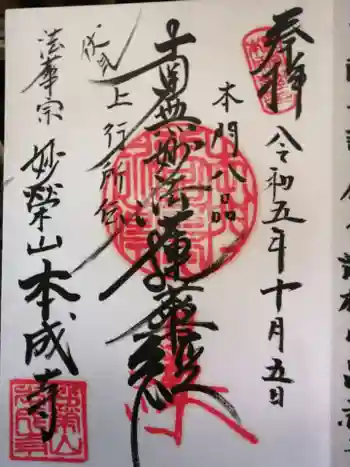 奉拝
令和五年十月五日
本門八品
南無妙法蓮華経
上行所伝
法華宗
妙栄山本成寺